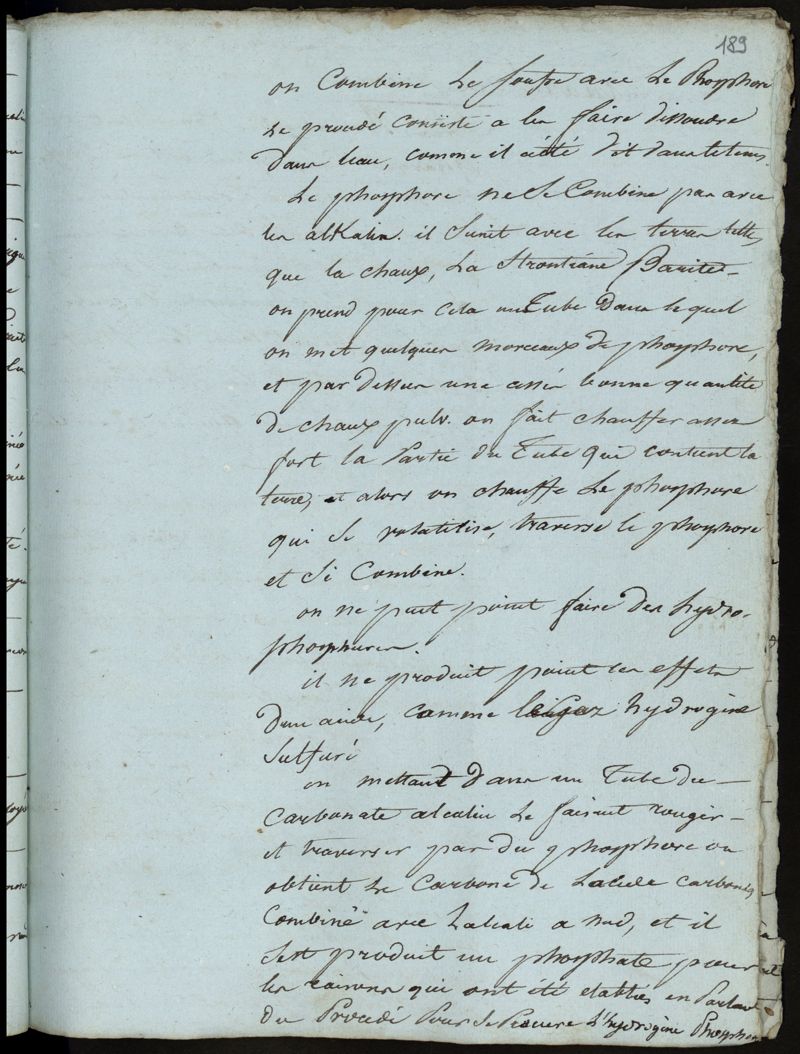 189
on Combine Le soufre avec Le Phosphore
Le procédé consiste a les faire dissoudre
Dans leau, comme il a été dit dans le tems.
Le phosphore ne se Combine pas avec
les alKalis. il sunit avec les terres telles
que la chaux, La Strontiane Barites
on prend pour cela un Tube Dans lequel
on met quelques morceaux de phosphore,
et par Dessus une assés bonne quantité
De chaux pulv. on fait chauffer assez
fort la Partie du Tube qui contient la
terre, et alors on chauffe Le phosphore
qui se volatilise, traverse le phosphore
et Si Combine.
on ne peut point faire des hydro-
phosphures.
il ne produit point les effets
Dun acide, comme le gaz hydrogène
Sulfuré
en mettant Dans un Tube du
Carbonate alcalin Le faisant rougir
et traverser par du phosphore on
obtient Le Carbone de Lacide carboniq
Combiné avec Lalcali a nud, et il
Sest produit un phosphate pour
les raisons qui ont été etablies en Parlant
du Procédé Pour Se Procurer L'hydrogène Phosphor